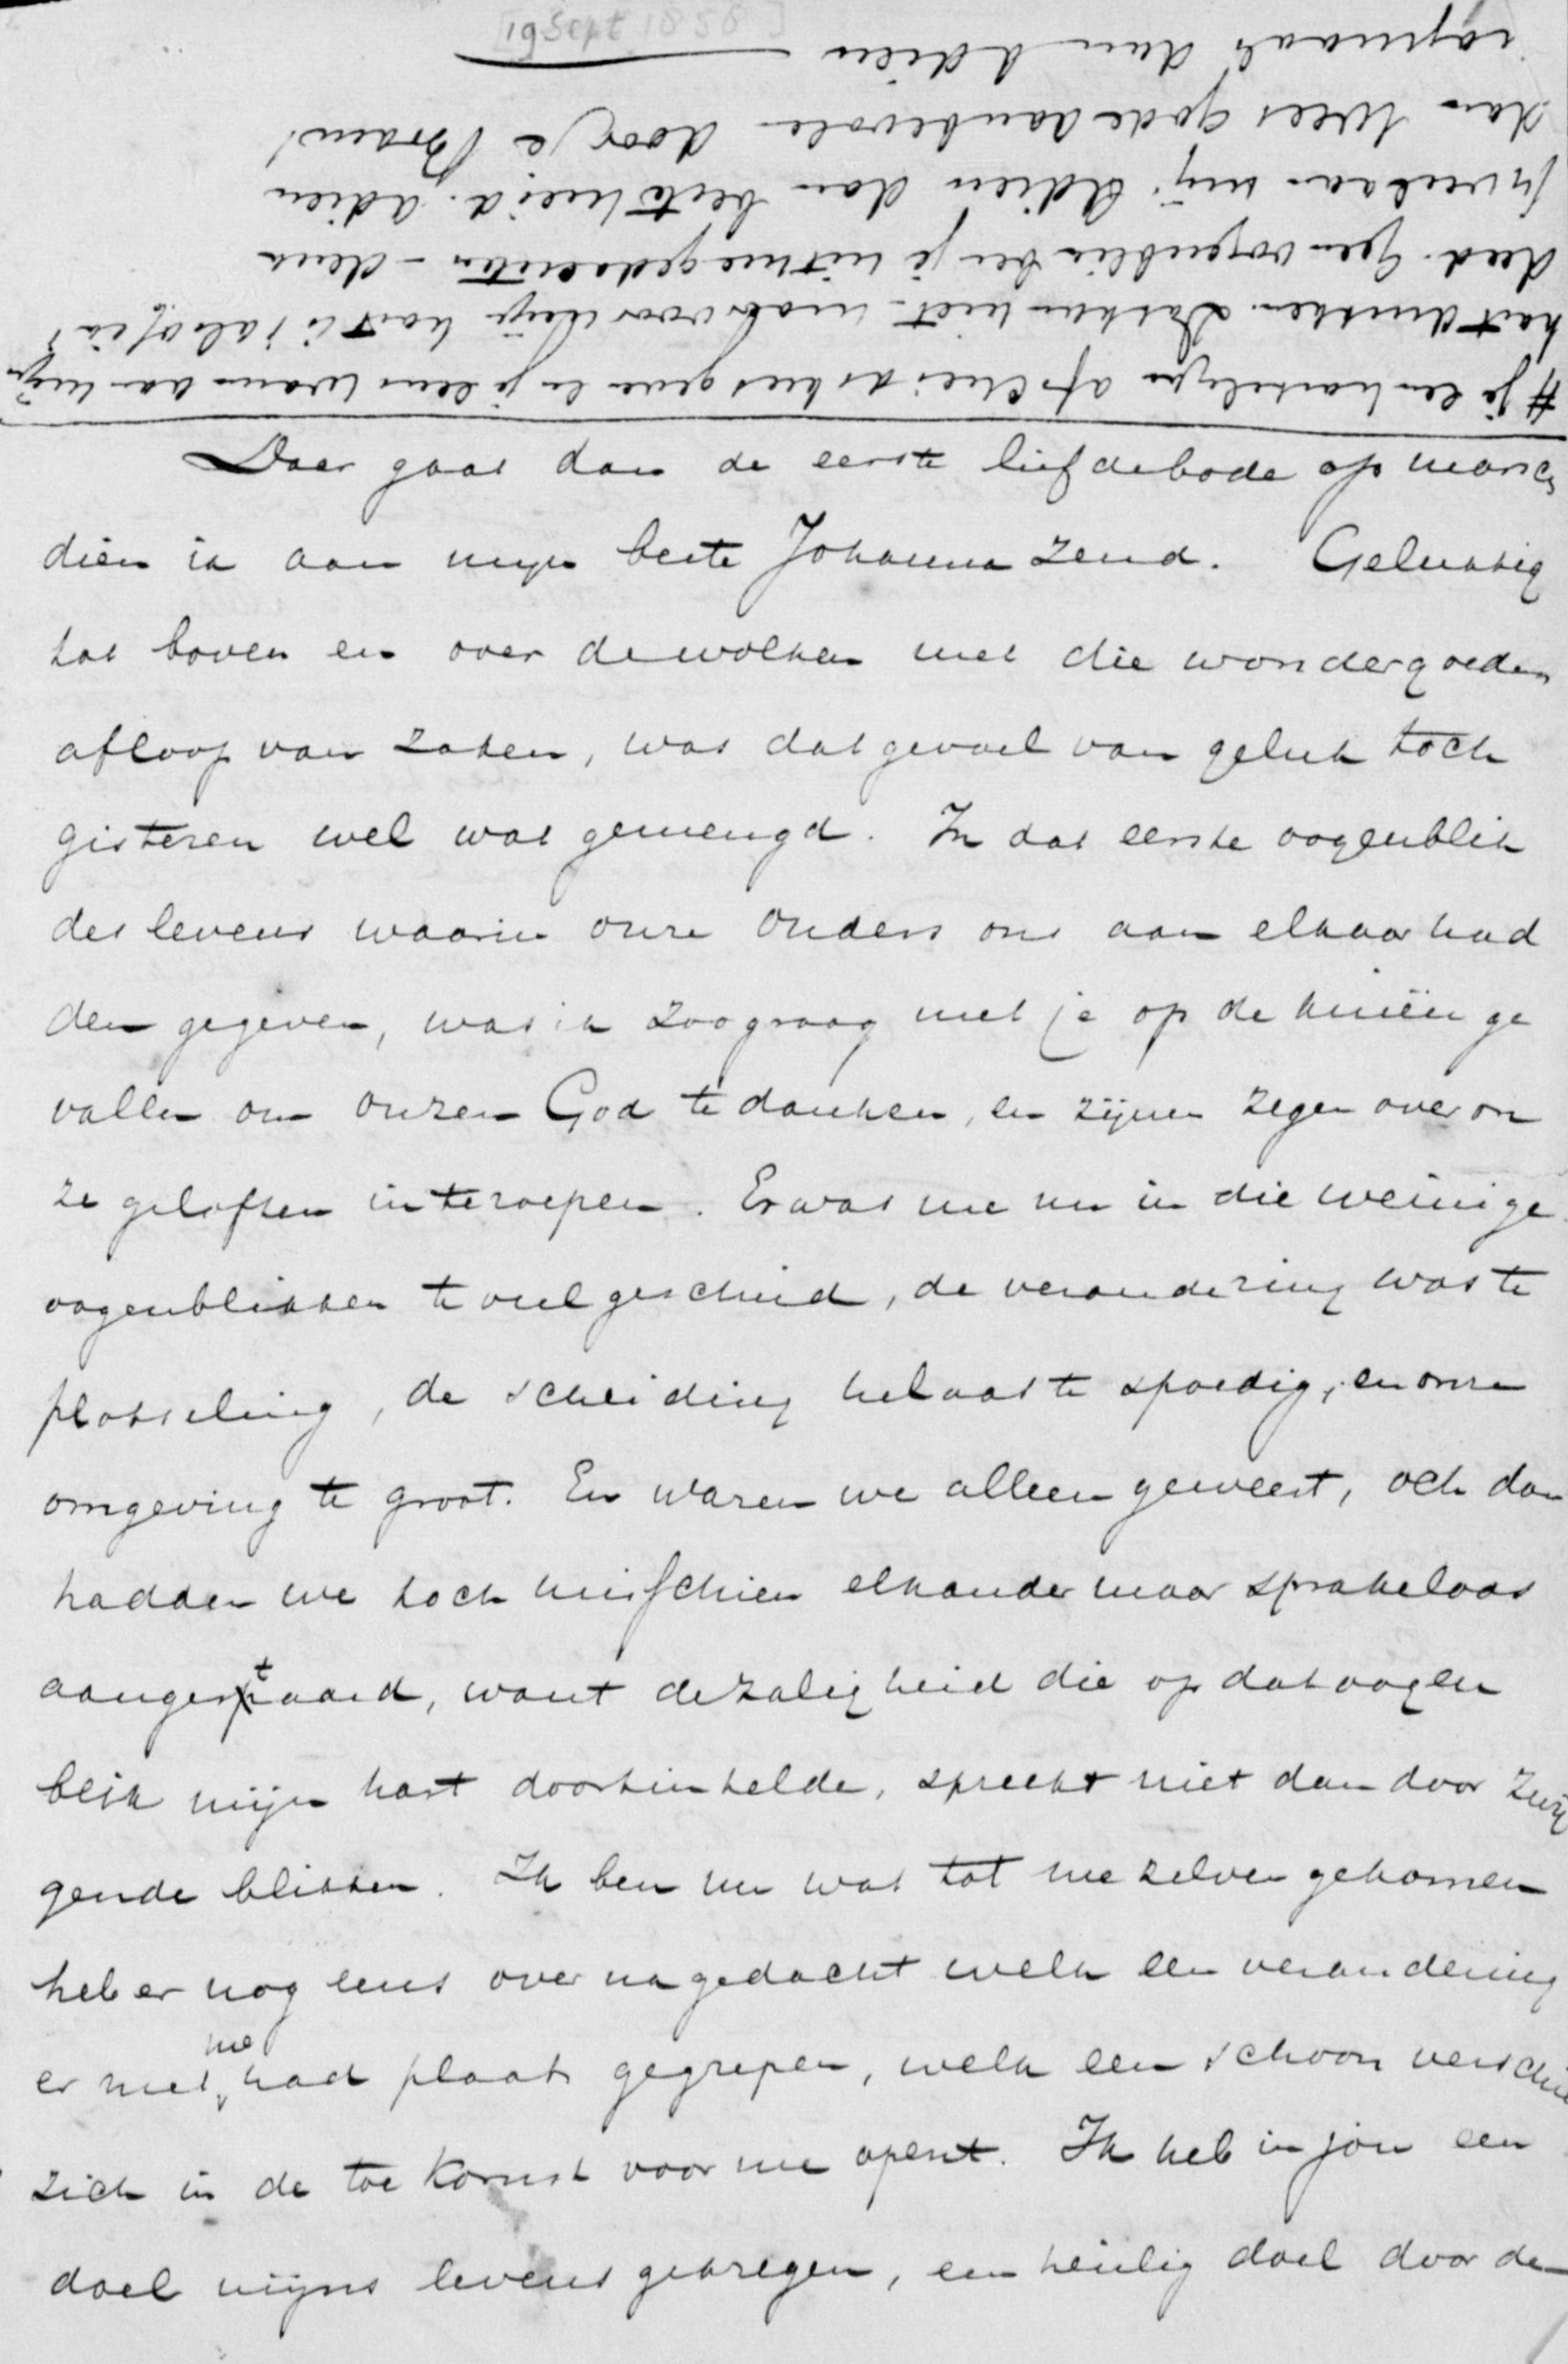 [19 Sept 1858]
Daar gaat dan de eerste liefdebode op marsch
dien ik aan mijn beste Johanna zend. Gelukkig
tot boven en over de wolken met die wondergoeden
afloop van zaken, was dat gevoel van geluk toch
gisteren wel wat gemengd. In dat eerste oogenblik
des levens waarin onze Ouders ons aan elkaar had
den gegeven, was ik zoo graag met je op de knieën ge
vallen om onzen God te danken, en zijnen zegen over on
ze geloften in te roepen. Er was me nu in die weinige
oogenblikken te veel geschied, de verandering was te
plotseling, de scheiding helaas te spoedig, en onze
omgeving te groot. En waren we alleen geweest, och dan
hadden we toch misschien elkander maar sprakeloos
aangestaard, want de zaligheid die op dat oogen
blik mijn hart doortintelde, spreekt niet dan door zwij
gende blikken. Ik ben nu wat tot me zelven gekomen
heb er nog eens over nagedacht welk een verandering
er met me had plaats gegrepen, welk een schoon verschiet
zich in de toekomst voor me opent. Ik heb in jou een
doel mijns levens gekregen, een heilig doel door de
# je een hartelijken afscheidskus geven en je eens warm aan mijn
hart drukken. Dat kan niet – maar voor mijn hart is 't alsof ik 't
deed. Geen oogenblik ben je uit me gedachten – denk
veel aan mij. Adieu dan beste meid. Adieu
dan Wees Gode aanbevolen door je Bram!
nogmaals dan Adieu